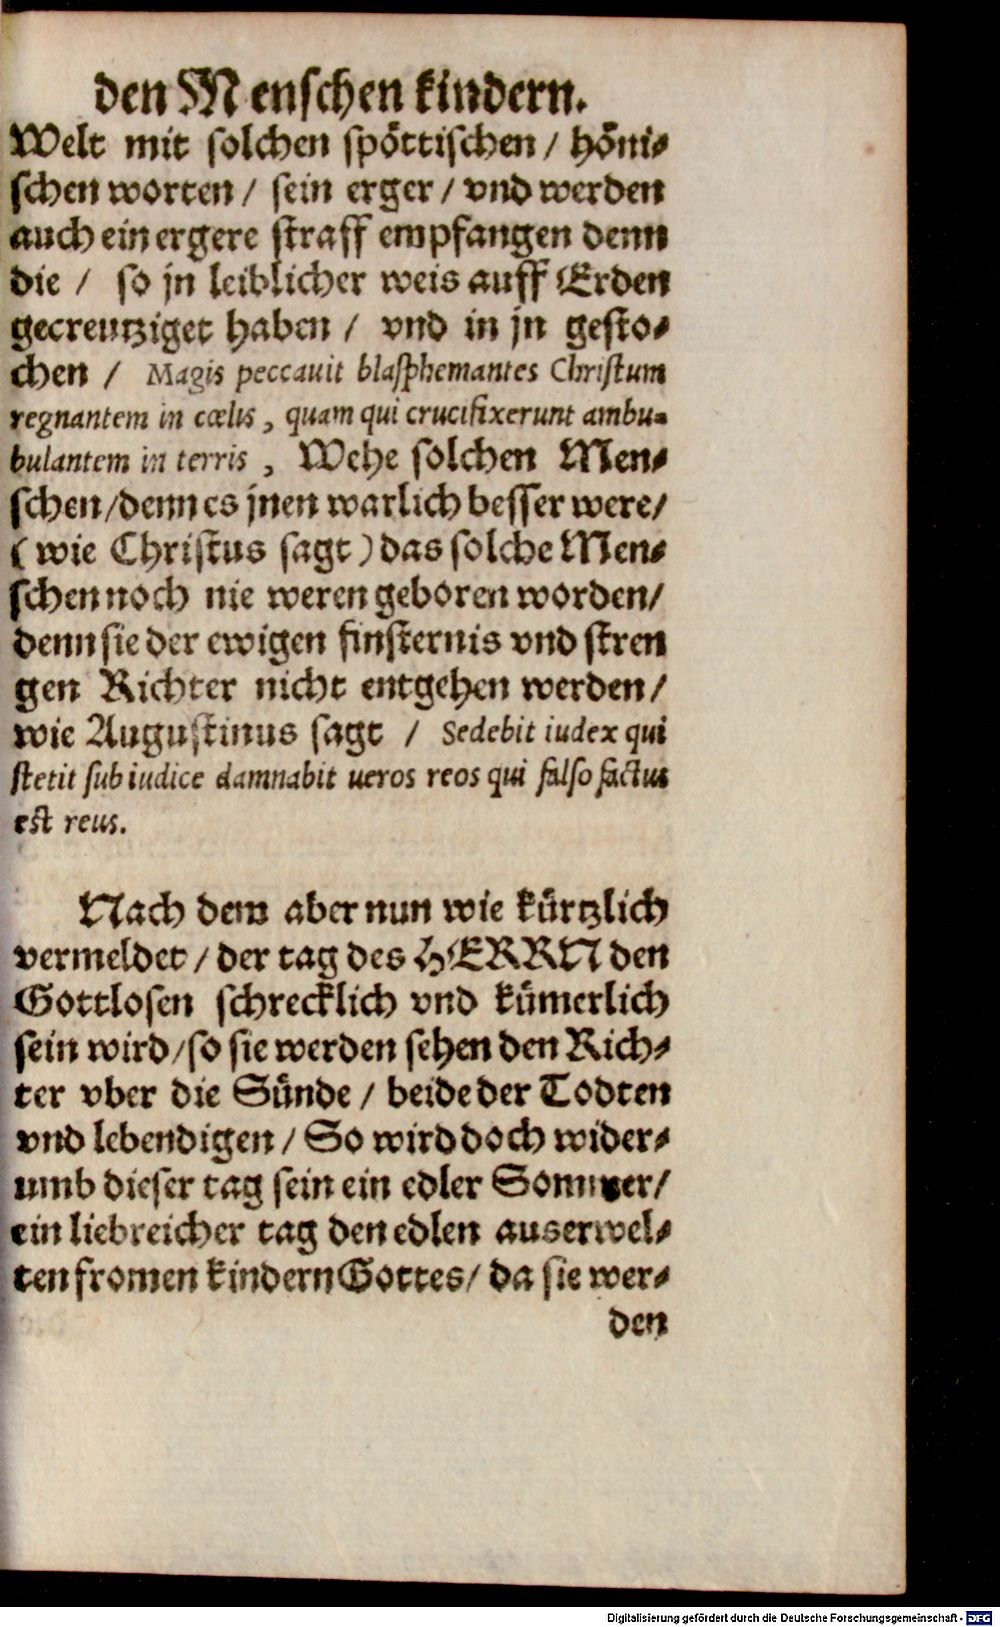 den Menschen kindern.
Welt mit solchen spöttischen / höni⸗
schen worten / sein erger / vnd werden
auch ein ergere straff empfangen denn
die / so jn leiblicher weis auff Erden
gecreutziget haben / vnd in jn gesto⸗
chen / Magis peccauit blasphemantes Christum
regnantem in cœlis, quam qui crucifixerunt ambu⸗
bulantem in terris, Wehe solchen Men⸗
schen/denn es jnen warlich besser were/
(wie Christus sagt) das solche Men⸗
schen noch nie weren geboren worden/
denn sie der ewigen finsternis vnd stren
gen Richter nicht entgehen werden/
wie Augustinus sagt / Sedebit iudex qui
stetit sub iudice damnabit ueros reos qui falso factus
est reus.
Nach dem aber nun wie kürtzlich
vermeldet / der tag des HERRN den
Gottlosen schrecklich vnd kümerlich
sein wird/so sie werden sehen den Rich⸗
ter vber die Sünde / beide der Todten
vnd lebendigen / So wird doch wider⸗
umb dieser tag sein ein edler Sommer/
ein liebreicher tag den edlen auserwel⸗
ten fromen kindern Gottes/ da sie wer⸗
den
Digitalisierung gefördert durch die Deutsche Forschungsgemeinschaft - DFG